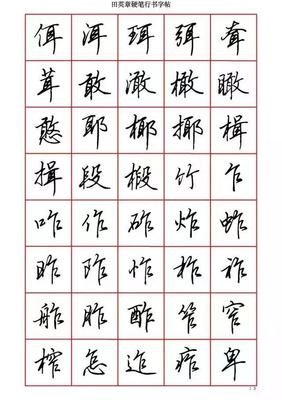 田英章硬笔行书字帖
佴 洱 珥 弭 耷
茸 敢 澉 橄 瞰
憨 耶 椰 揶 楫
揖 段 椴 竹 乍
咋 作 砟 炸 蚱
昨 阼 怍 柞 祚
舴 胙 酢 笮 窄
榨 怎 迮 痄 卑